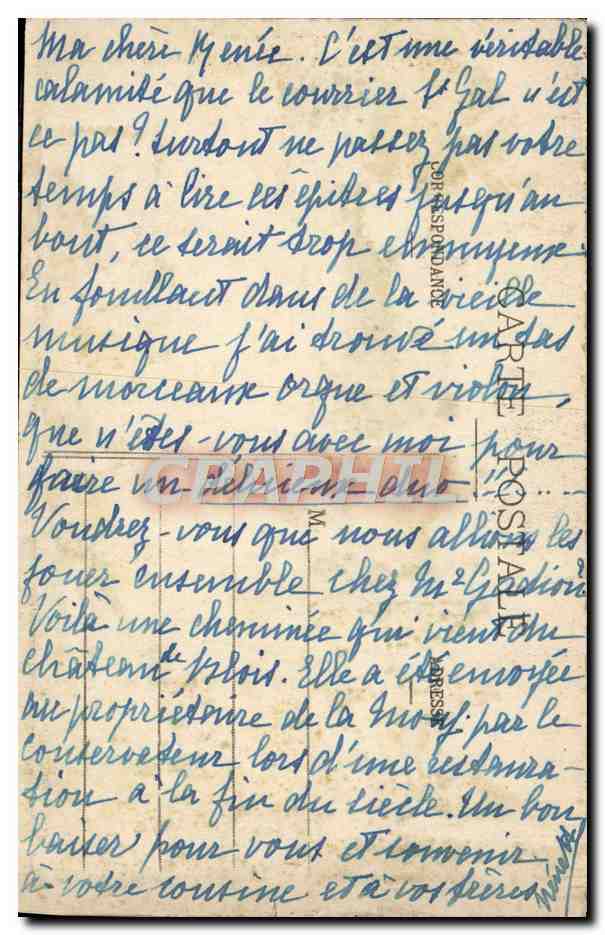 Ma chère Renée. C'est une véritable
calamité que le courrier St Gal n'est
ce pas? Surtout ne passez pas votre
temps à lire ces épitres jusqu'au
bout, ce serait trop ennuyeux.
En fouillant dans de la vieille
musique j'ai trouvé un tas
de morceaux orgue et violon,
que n'êtes-vous avec moi pour
faire un délicieux duo !! ....
Voudrez-vous que nous allions les
jouer ensemble chez Mr Gadiou?
Voilà une cheminée qui vient du
château de Blois. Elle a été envoyée
au propriétaire de la par le
conservateur lors d'une restaura-
tion à la fin du siècle. Un bon
baiser pour vous et souvenir
à votre cousine et à vos frères
CORRESPONDANCE
CARTE POSTALE
M
ADRESSE
CRAPHIL